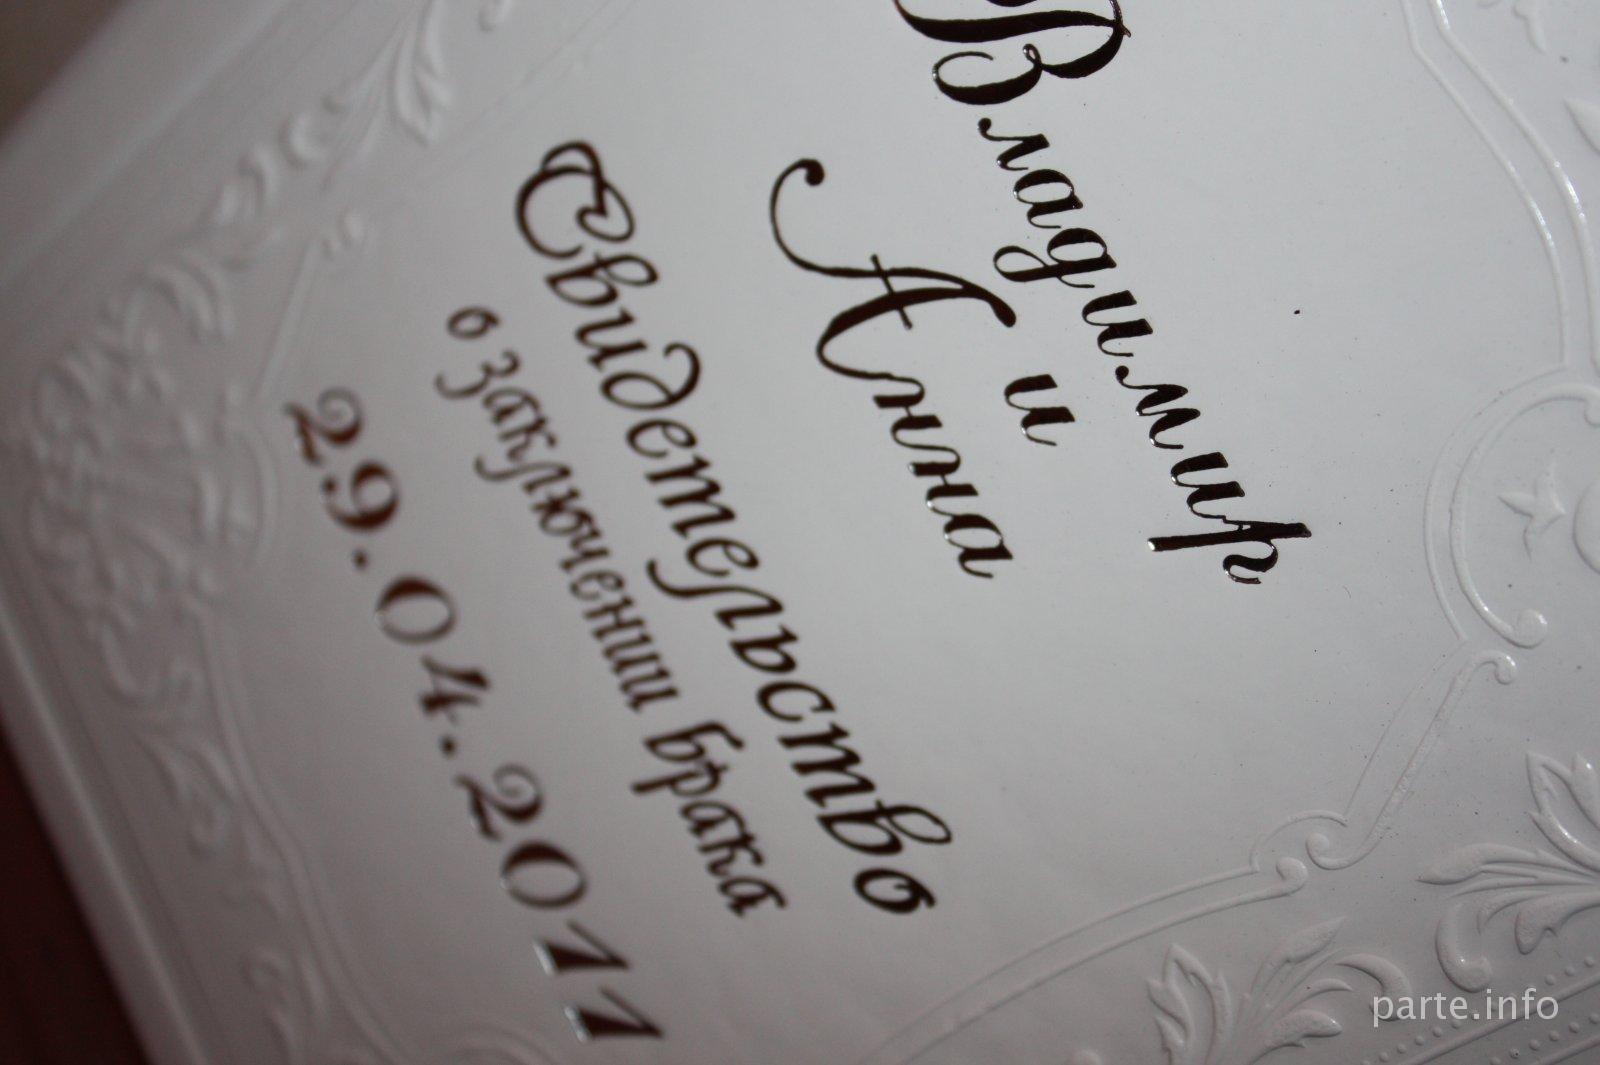 Владимир
и
Анна
Свидетельство
о заключении брака
29.04.2011
parte.info